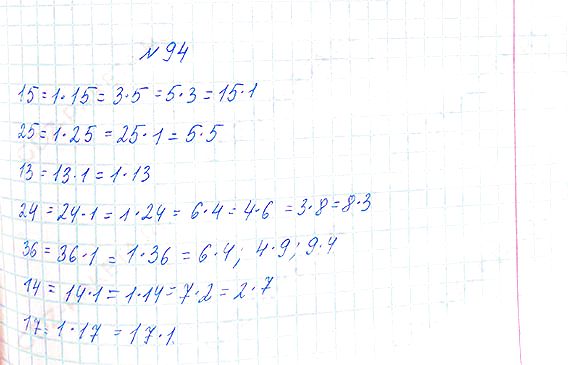 №94
15=1·15=3·5=5·3=15·1
25=1·25=25·1=5·5
13=13·1=1·13
24=24·1=1·24=6·4=4·6=3·8=8·3
36=36·1=1·36=6·4; 4·9; 9·4
14=14·1=1·14=7·2=2·7
17=1·17=17·1